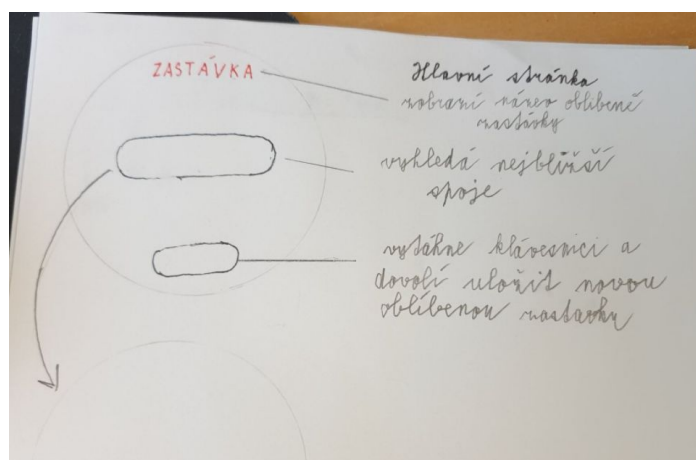 ZASTÁVKA
Hlavní stránka
zobrazí název oblíbené
zastávky
vyhledá nejbližší
spoje
vytáhne klávesnici a
dovolí uložit novou
oblíbenou zastavku